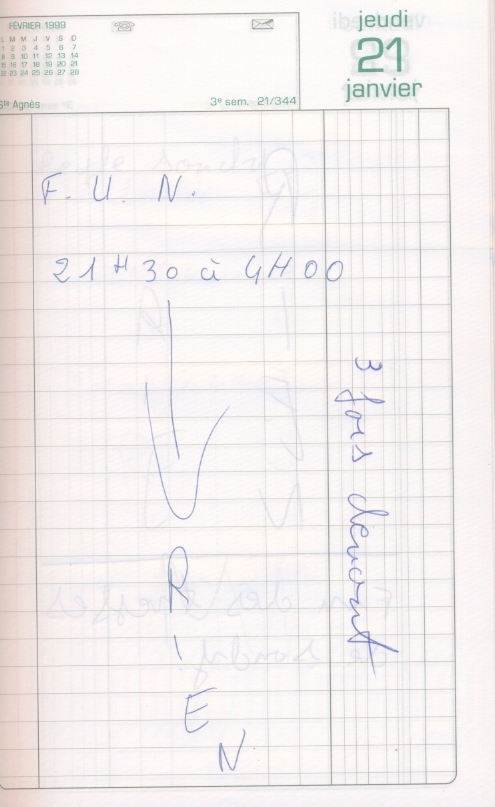 FÉVRIER 1999
L M M J V S D
1 2 3 4 5 6 7
8 9 10 11 12 13 14
15 16 17 18 19 20 21
22 23 24 25 26 27 28
Ste Agnès
3e sem. 21/344
jeudi
21
janvier
F. U. N.
21 H 30 à 4H00
3 fois devant
R
I
E
N